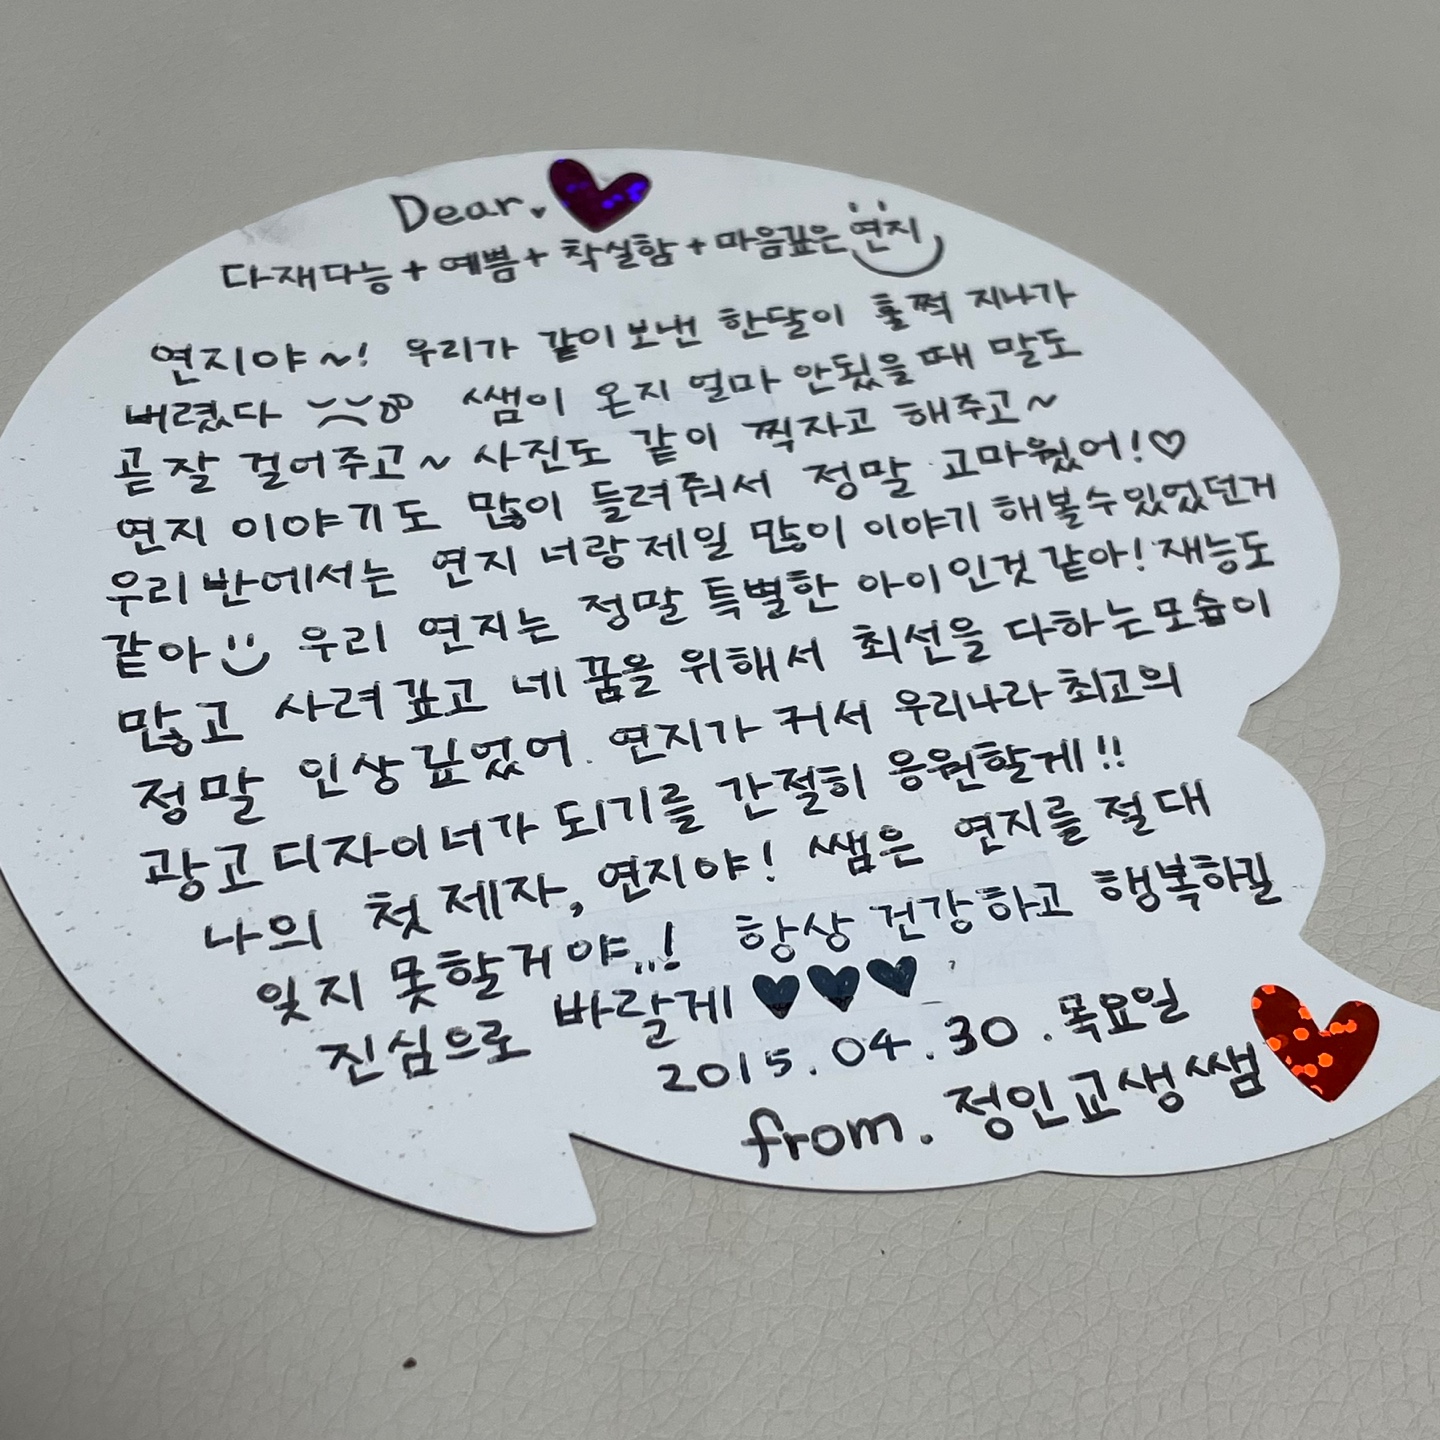 Dear.
다재다능 + 예쁨 + 착실함 + 마음깊은 연지
연지야~! 우리가 같이 보낸 한달이 훌쩍 지나가
버렸다 쌤이 온지 얼마 안됬을때 말도
곧잘 걸어주고~ 사진도 같이 찍자고 해주고~
연지 이야기도 많이 들려줘서 정말 고마웠어!♡
우리반에서는 연지 너랑 제일 많이 이야기 해볼수있었던거
같아 우리 연지는 정말 특별한 아이인것 같아! 재능도
많고 사려깊고 네 꿈을 위해서 최선을 다하는모습이
정말 인상깊었어. 연지가 커서 우리나라 최고의
광고디자이너가 되기를 간절히 응원할게!!
나의 첫제자, 연지야! 쌤은 연지를 절대
잊지 못할거야..! 항상 건강하고 행복하길
진심으로 바랄게 ♥♥♥
2015.04.30.목요일
from. 정인교생쌤